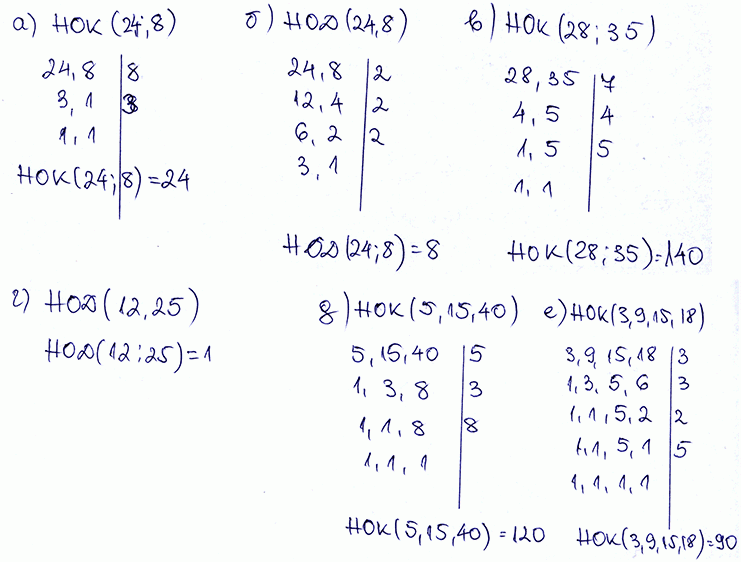 а) НОК (24;8)
24,8 | 8
3, 1 | 3
1, 1
НОК(24;8)=24
б) НОД(24,8)
24,8 | 2
12,4 | 2
6, 2 | 2
3, 1
НОД(24;8)=8
в) НОК (28;35)
28,35 | 7
4, 5 | 4
1, 5 | 5
1, 1
НОК(28;35)=140
г) НОД(12,25)
НОД(12;25)=1
д) НОК(5,15,40)
5,15,40 | 5
1, 3, 8 | 3
1, 1, 8 | 8
1, 1, 1
НОК(5,15,40)=120
е) НОК(3,9,15,18)
3,9,15,18 | 3
1,3,5,6 | 3
1,1,5,2 | 2
1,1,5,1 | 5
1,1,1,1
НОК(3,9,15,18)=90